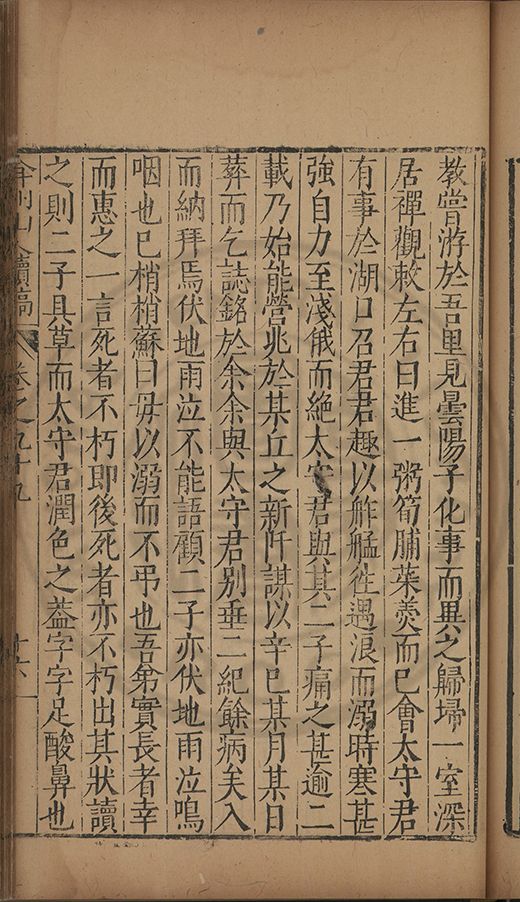 教嘗游於吾里見曇陽子化事而異之歸埽一室深
居禪觀敕左右曰進一粥筍脯菜羹而已會太守君
有事於湖口召君君趣以舴艋徃遇浪而溺時寒甚
強自力至淺俄而絶太守君與其二子痛之甚逾二
載乃始能營兆於某丘之新阡謀以辛巳某月某日
葬而乞誌銘於余余與太守君别垂二紀餘病矣入
而納拜焉伏地雨泣不能語顧二子亦伏地雨泣嗚
咽也巳稍稍蘇曰毋以溺而不弔也吾弟實長者幸
而惠之一言死者不朽即後死者亦不朽出其狀讀
之則二子具草而太守君潤色之葢字字足酸鼻也
弇州山人續稿 卷之九十九